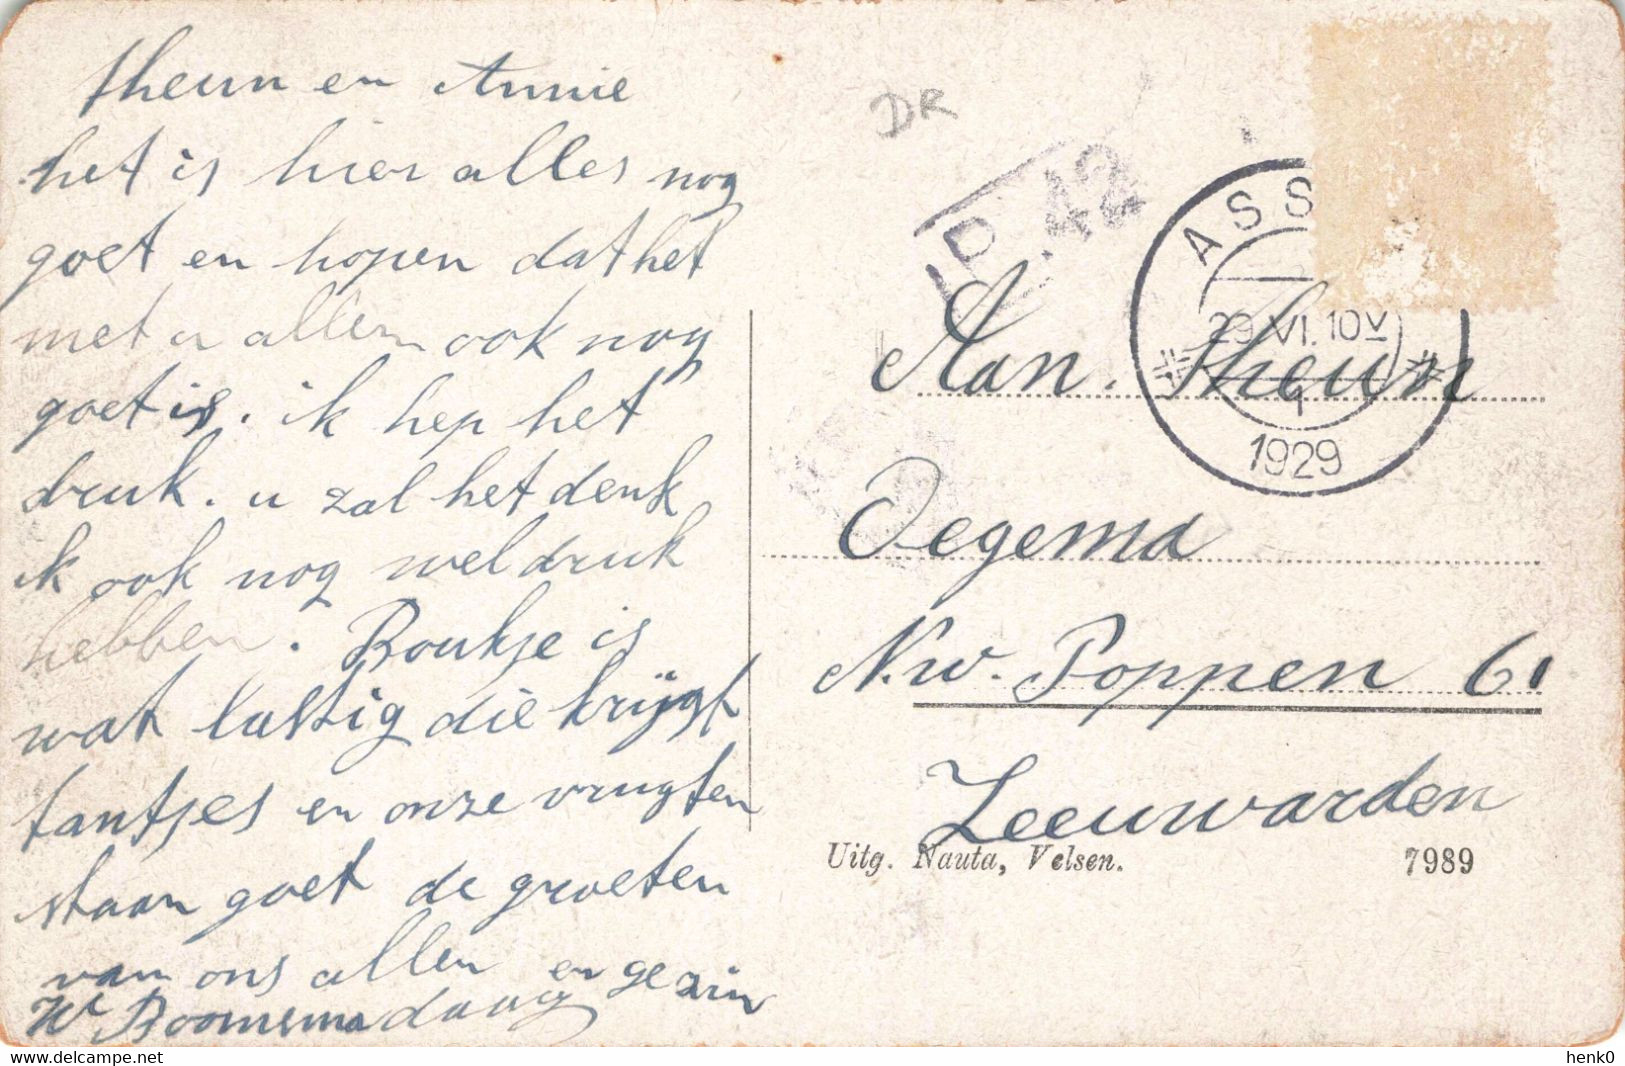 theun en Annie
het is hier alles nog
goet en hopen dat het
met u allen ook nog
goet is. ik hep het
druk. u zal het denk
ik ook nog wel druk
hebben. Boukje is
wat lustig die krijgt
tantjes en onze vrugten
staan goet de groeten
van ons allen en gezin
W Boonsma daag
DR
P. 42
ASS
29.VI.10V
1
1929
Aan. Theun
Oegema
N.w. Poppen 61
Leeuwarden
Uitg. Nauta, Velsen. 7989
© delcampe.net
henk0